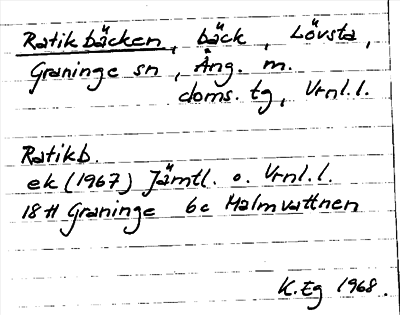 Ratikbäcken, bäck, Lövsta,
Graninge sn, Ång. m.
doms. tg, Vrnl.l.
Ratikb.
ek (1967) Jämtl. o. Vrnl.l.
18H Graninge 6c Malmvattnen
K.Eg 1968.